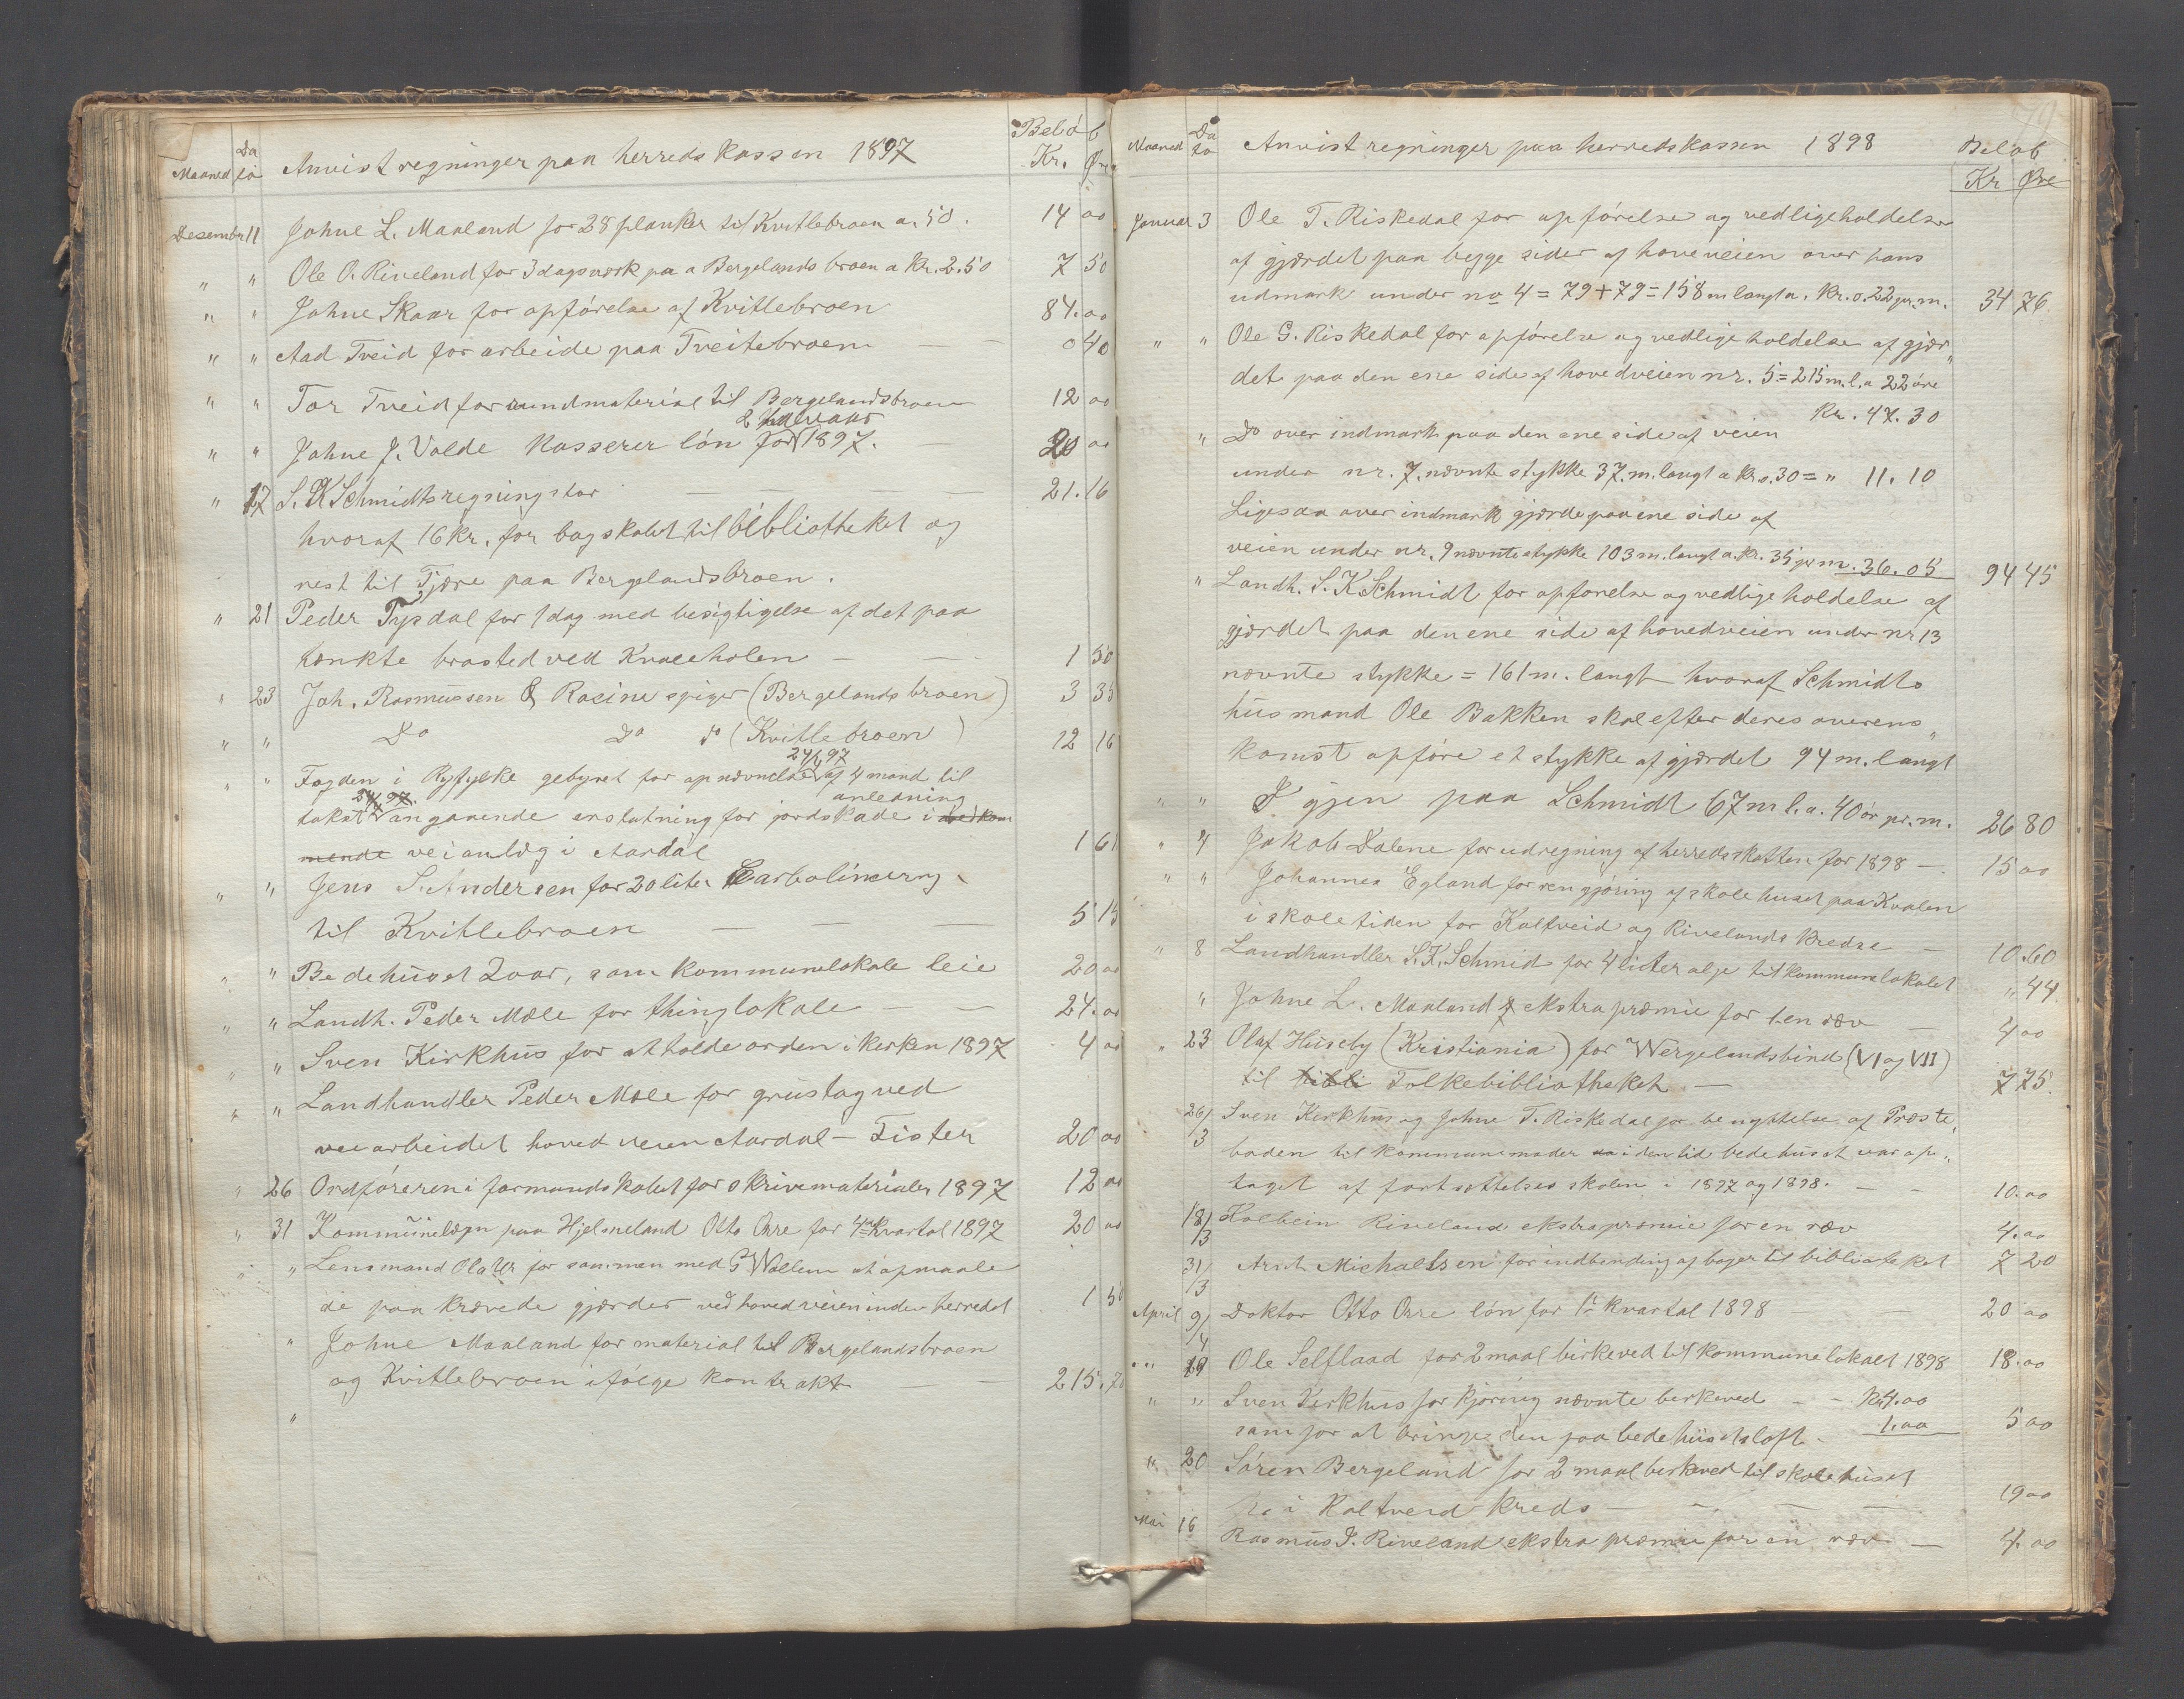 Maaned Da to Anvist regninger paa herredskassen 1897 Beløb Kr. Øre
Desember 11 Johne L. Maaland for 28 planker til Kvitlebroen a. 50. 14 00
" " Ole O. Riveland for 3 dagsverk paa Bergelands broen a Kr. 2.50 7 50
" " Johne Skaar for opførelse af Kvitlebroen 84.00
" " Aad Tveid for arbeide paa Tveitebroen — — 0 40
" " Tor Tveid for rundmaterial til Bergelandsbroen 12 00
2 halvaar
" " Johne J. Valde kasserer løn for 1897. — 20 00
" 17 S. K Schmidts regning stor — — — — 21.16
hvoraf 16 Kr. for bogskabet til bibliotheket og
rest til Tjære paa Bergelandsbroen.
" 21 Peder Tysdal for 1 dag med besigtigelse af det paa
tænkte brosted ved Kvaleholen — — 1 50
" 23 Joh. Rasmussen & Racine spiger (Bergelands broen) 3 35
" " Do Do do (Kvitlebroen) 12 16
24/4 97
" " Fogden i Ryfylke gebyret for opnævnelse af 4 mand til
24/4 97. anledning
takst angaaende erstatning for jordskade i vedkom
mende veianlæg i Aardal 1 61
" " Jens S. Andersen for 20 liter Carbolineum
til Kvitlebroen — — — 5 15
" " Bedehuset Zoar, som kommunelokale leie 20 00
" " Landh. Peder Mæle for thinglokale — — 24.00
" " Sven Kirkhus for at holde orden i kirken 1897 4 00
" " Landhandler Peder Mæle for grustag ved
veiarbeidet hovedveien Aardal — Fister 20 00
" 26 Ordføreren i formandskabet for skrivematerialer 1897 12 00
" 31 Kommunelægen paa Hjelmeland Otto Orre for 4de Kvartal 1897 20 00
" " Lensmand Ola Ur for sammen med G Wallem at opmaale
de paa krævede gjærder ved hovedveien inden herredet 1 50
" Johne Maaland for material til Bergelandsbroen
og Kvitlebroen ifølge kontrakt — — 215.70
"
79
Maaned Da to Anvist regninger paa herredskassen 1898 Beløb
Kr Øre
Januar 3 Ole T. Riskedal for opførelse og vedligeholdelse
af gjærdet paa begge sider af hoveveien over hans
udmark under no 4 = 79 + 79 = 158 m langt a. Kr. 0.22 pr. m. 34 76
" " Ole G. Riskedal for opførelse og vedlige holdelse af gjær„
det paa den ene side af hovedveien nr. 5 = 215 m. l. a 22 øre
Kr. 47.30
" Do over indmark paa den ene side af veien
under nr. 7. nævnte stykke 37. m. langt a Kr 0.30 = " 11.10
Ligesaa over indmark gjærde paa ene side af
veien under nr. 9 nævnte stykke 103 m. langt a. Kr. 35 pr m. 36.05 94 45
" Landh. S. K Schmidt for opførelse og vedlige holdelse af
gjærdet paa den ene side af hovedveien under nr 13
nævnte stykke = 161 m. langt hvoraf Schmidts
husmand Ole Bakken skal efter deres overens„
komst opføre et stykke af gjærdet 94 m. langt
" " I gjen paa Schmidt 67 m l. a. 40 ør pr. m. 26 80
" " Jakob Dalene for udregning af herredsskatten for 1898 — 15 00
" " Johannes Egland for rengjøring af skolehuset paa Kvalen
i skoletiden for Kaltveid og Rivelands Kredse — 10.60
" 8 Landhandler S. K. Schmid for 4 liter olje til kommunelokalet " 44
" Johne L. Maaland ekstrapræmie for 1 en ræv — 4 00
" 23 Olaf Huseby (Kristiania) for Wergelandsbind (VI og VII)
til bibli Folkebibliotheket — 7 75
26/3 Sven Kirkhus og Johne T. Riskedal for benyttelse af Præste„
boden til kommunemøder i den tid bedehuset var op„
taget af fortsættelses skolen i 1897 og 1898. — — 10.00
18/3 Holbein Riveland ekstrapræmie for en ræv 4.00
31/3 Arnt Michaelsen for indbending af bøger til biblioteket 7 20
April 9/4 Doktor Otto Orre løn for 1ste kvartal 1898 — 20 00
" " 19 Ole Selflaad for 2 maal birkeved til kommunelokalet 1898 18.00
" " Sven Kirkhus for kjøring nævnte birkeved — — Kr 4.00
sam for at bringe den paa bedehusets loft — 1.00 5 00
" 20 Søren Bergeland for 2 maal birkeved til skolehuset
i Kaltveid Kreds — — — — 19 00
Mai 16 Rasmus J. Riveland ekstra præmie for en ræv — 4.00